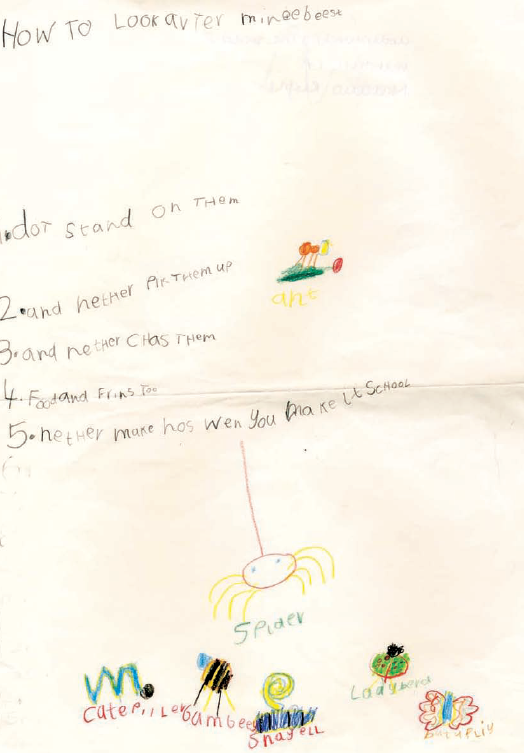 HOW TO LOOK avTer mineebeest
1. doT stand on THem
ant
2. and neTHer Pik THem up
3. and neTHer CHas THem
4. Food and Frins Too
5. neTHer make hos wen You make it SCHOOL
Spider
Caterpiller
bambee
Snayell
Ladyberd